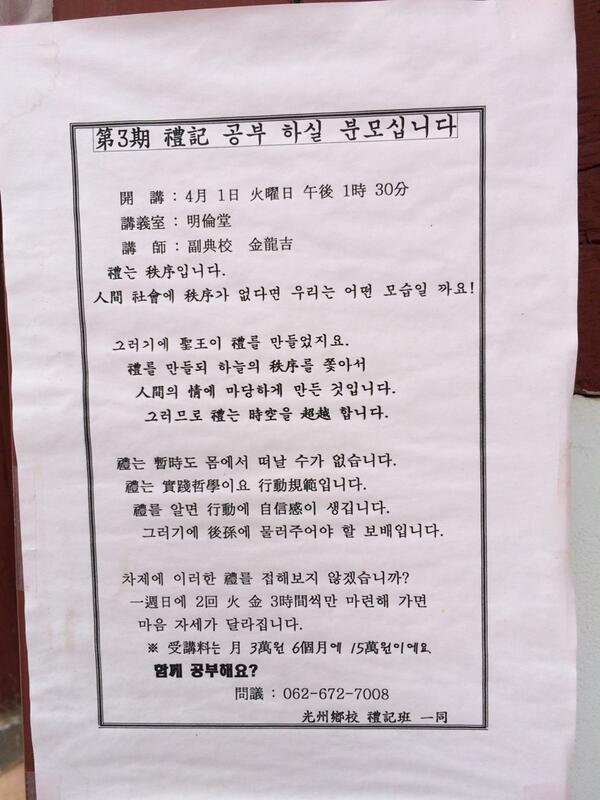 第3期 禮記 공부 하실 분모십니다
開 講 : 4月 1日 火曜日 午後 1時 30分
講義室 : 明倫堂
講 師 : 副典校 金龍吉
禮는 秩序입니다.
人間 社會에 秩序가 없다면 우리는 어떤 모습일 까요!
그러기에 聖王이 禮를 만들었지요.
禮를 만들되 하늘의 秩序를 쫓아서
人間의 情에 마당하게 만든 것입니다.
그러므로 禮는 時空을 超越 합니다.
禮는 暫時도 몸에서 떠날 수가 없습니다.
禮는 實踐哲學이요 行動規範입니다.
禮를 알면 行動에 自信感이 생깁니다.
그러기에 後孫에 물러주어야 할 보배입니다.
차제에 이러한 禮를 접해보지 않겠습니까?
一週日에 2回 火 金 3時間씩만 마련해 가면
마음 자세가 달라집니다.
※ 受講料는 月 3萬원 6個月에 15萬원이에요
함께 공부해요?
問議 : 062-672-7008
光州鄕校 禮記班 一同